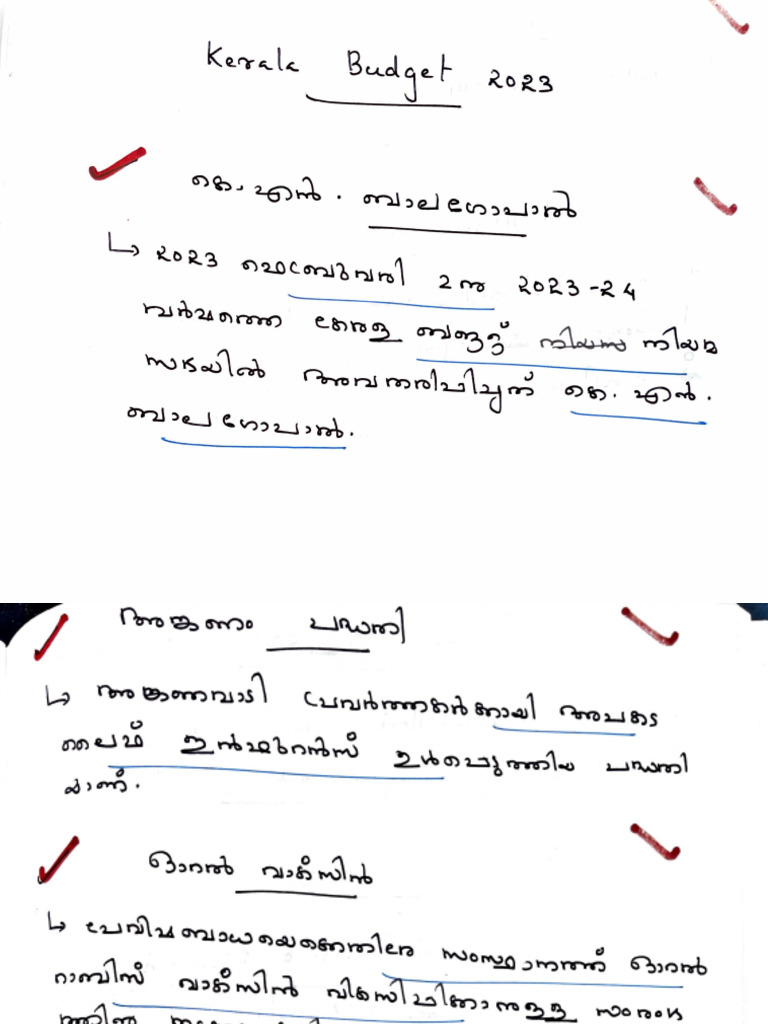 Kerala Budget 2023
കെ. എൻ. ബാലഗോപാൽ
↳ 2023 ഫെബ്രുവരി 2നു 2023-24
വർഷത്തെ കേരള ബജറ്റ് നിയമ
സഭയിൽ അവതരിപ്പിച്ചത് കെ. എൻ.
ബാലഗോപാൽ.
അങ്കണം പദ്ധതി
↳ അങ്കണവാടി പ്രവർത്തകർക്കായി അപകട
ലൈഫ് ഇൻഷുറൻസ് ഉൾപ്പെടുത്തിയ പദ്ധതി
യാണ്.
ഓറൽ വാക്സിൻ
↳ പേവിഷബാധയെക്കെതിരെ സംസ്ഥാനത്ത് ഓറൽ
റാബിസ് വാക്സിൻ വികസിപ്പിക്കാനുള്ള സംരംഭ